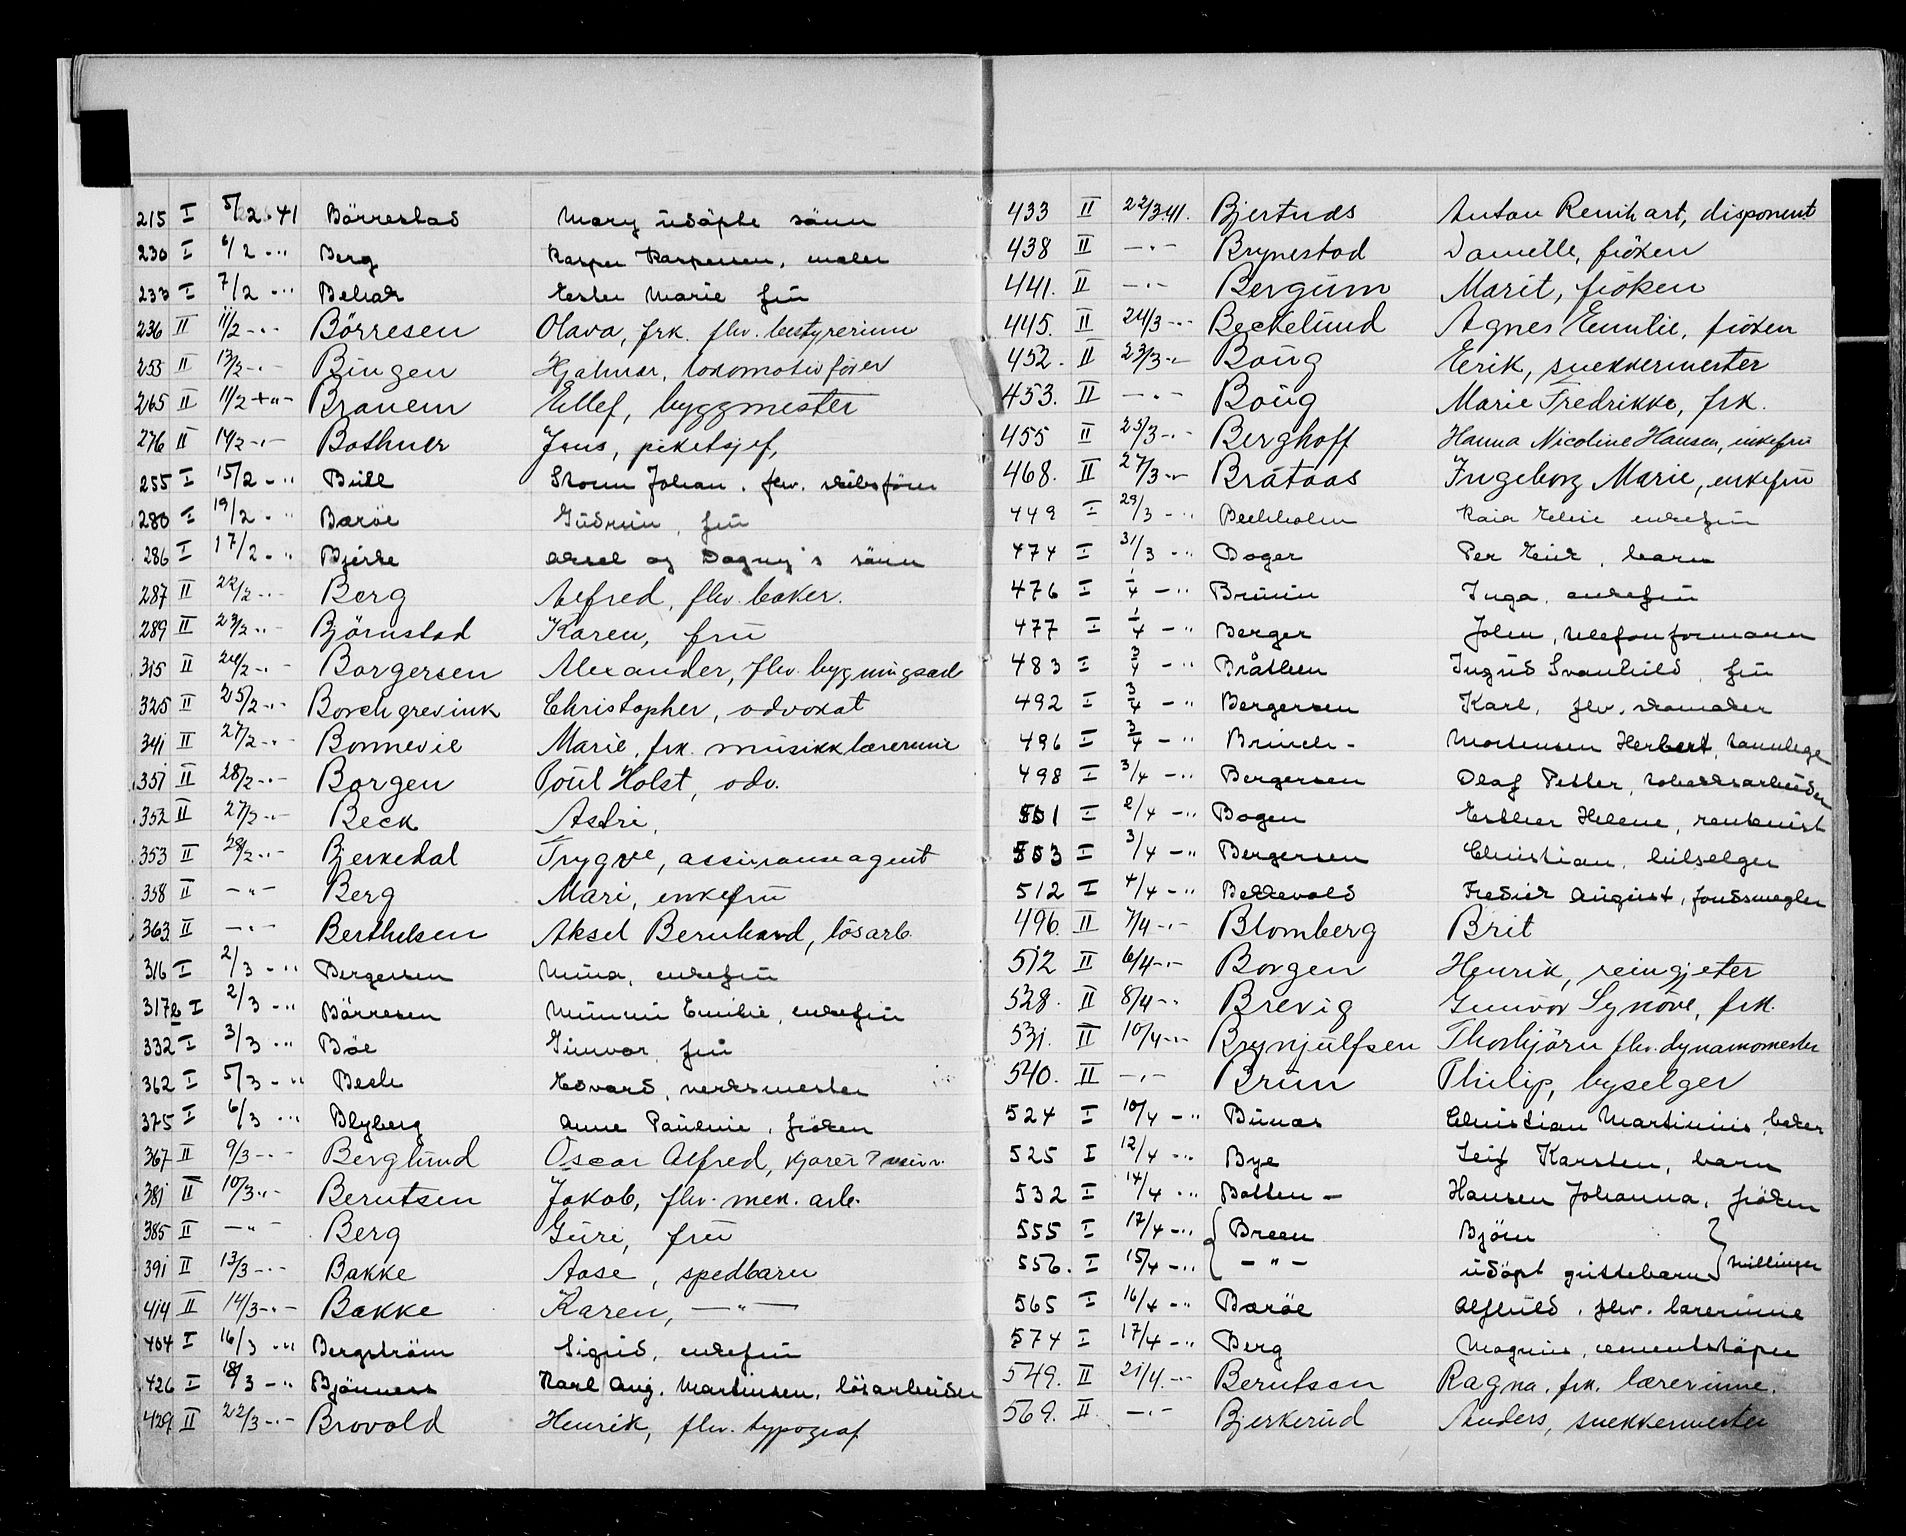 215 I 5/2 41 Börrestad Mary udöpte sönn
230 I 6/2 -"- Berg Kasper Kaspersen, maler
233 I 7/2 -"- Behak Ester Marie fru
236 II 11/2 -"- Börresen Olava, frk. fhv. bestyrerinne
255 II 13/2 -"- Bingen Hjalmar, lokomotivförer
265 II 11/2 -"- Branem Ellef, byggmester
276 II 14/2 -"- Bothner Jens, piketsjef,
255 I 15/2 -"- Bull Storm Johan, fhv. skibsförer
280 I 19/2 -"- Baröe Gudrun, fru
286 I 17/2 -"- Bjerke Aksel og Dagny's sönn
287 II 22/2 -"- Berg Alfred, fhv. baker.
289 II 23/2 -"- Björnstad Karen, fru
315 II 24/2 -"- Borgersen Alexander, fhv. bygningsarb
325 II 25/2 -"- Borchgrevink Christopher, advokat
341 II 27/2 -"- Bonnevie Marie, frk. musikklærerinne
351 II 28/2 -"- Borgen Poul Holst, adv.
352 II 27/2 -"- Beck Astri,
353 II 28/2 -"- Bjerkedal Trygve, assuranseagent
358 II -"- Berg Mari, enkefru
363 II -"- Berthelsen Aksel Bernhard, lösarb.
316 I 2/3 -"- Bergersen Mina, enkefru
317b I 2/3 -"- Börresen Mimmi Emilie, enkefru
332 I 3/3 -"- Böe Gunvor, fru
362 I 5/3 -"- Beck Edvard, verksmester
375 I 6/3 -"- Blyberg Anne Pauline, fröken
367 II 9/3 -"- Berglund Oscar Alfred,
381 II 10/3 -"- Berntsen Jakob, fhv. mek. arb.
385 II -"- Berg Guri, fru
391 II 13/3 -"- Bakke Aase, spedbarn
414 II 14/3 -"- Bakke Karen, -"-
404 I 16/3 -"- Bergström Sigrid, enkefru
426 I 18/3 -"- Bjönness Karl Aug. Martinsen, lösarbeider
429 II 22/3 -"- Brovold Henrik, fhv. typograf
433 II 22/3.41. Bjertnes Anton Reinhart, disponent
438 II -"- Brynestad Danielle, fröken
441. II -"- Bergum Marit, fröken
445. II 24/3 -"- Beckelund Agnes Emilie, fröken
452. II 23/3 -"- Boug Erik, snekkermester
453. II -"- Boug Marie Fredrikke, frk.
455 II 25/3 -"- Berghoff Hanna Nicoline Hansen, enkefru
468. II 27/3 -"- Bråtaas Ingeborg Marie, enkefru
449 I 29/3 -"- Beckholm Kaia enkefru
474 I 31/3 -"- Boger Per Eirik, barn
476 I 1/4 -"- Bruun Inga, enkefru
477 I 1/4 -"- Berger John, telefonformann
483 I 3/4 -"- Bråthen Ingrid Svanhild, fru
492 I 3/4 -"- Bergersen Karl, fhv. skomaker
496 I 3/4 -"- Brinch - Mortensen Herbert, tannlege
498 I 3/4 -"- Bergersen Olaf Petter, tobakksarbeider
501 I 2/4 -"- Bogen Esther Helene, rentenist
503 I 3/4 -"- Bergersen Christian, bilselger
512 I 4/4 -"- Bekkevold Fredrik August, fondsmegler
496. II 7/4 -"- Blomberg Brit
512 II 6/4 -"- Borgen Henrik, reingjeter
528. II 8/4 -"- Brevig Gunvor Synöve, frk.
531. II 10/4 -"- Brynjulfsen Thorbjörn fhv. dynamomester
540. II -"- Brun Philip, byselger
524 I 10/4 -"- Bunæs Christian Martinius, baker
525 I 12/4 -"- Bye Leif Karsten, barn
532 I 14/4 -"- Botten - Hansen Johanna, fröken
555 I 17/4 -"- Breen Björn
556. I 15/4 -"- -"- udöpt guttebarn tvillinger
565 I 16/4 -"- Baröe Alfhild, fhv. lærerinne
574 I 17/4 -"- Berg Magnus, cementstöper
549. II 21/4. -"- Berntsen Ragna, frk. lærerinne.
569. II. -"- Bjerkerud Anders, snekkermester